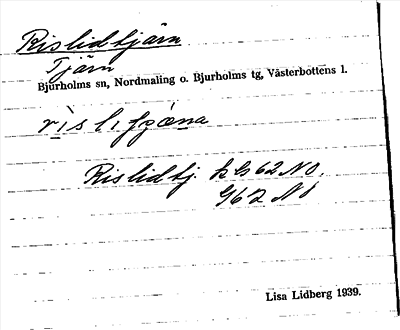 Rislidtjärn
Tjärn
Bjurholms sn, Nordmaling o. Bjurholms tg, Västerbottens l.
Rislidtj. k G62 NO.
G62 NO
Lisa Lidberg 1939.